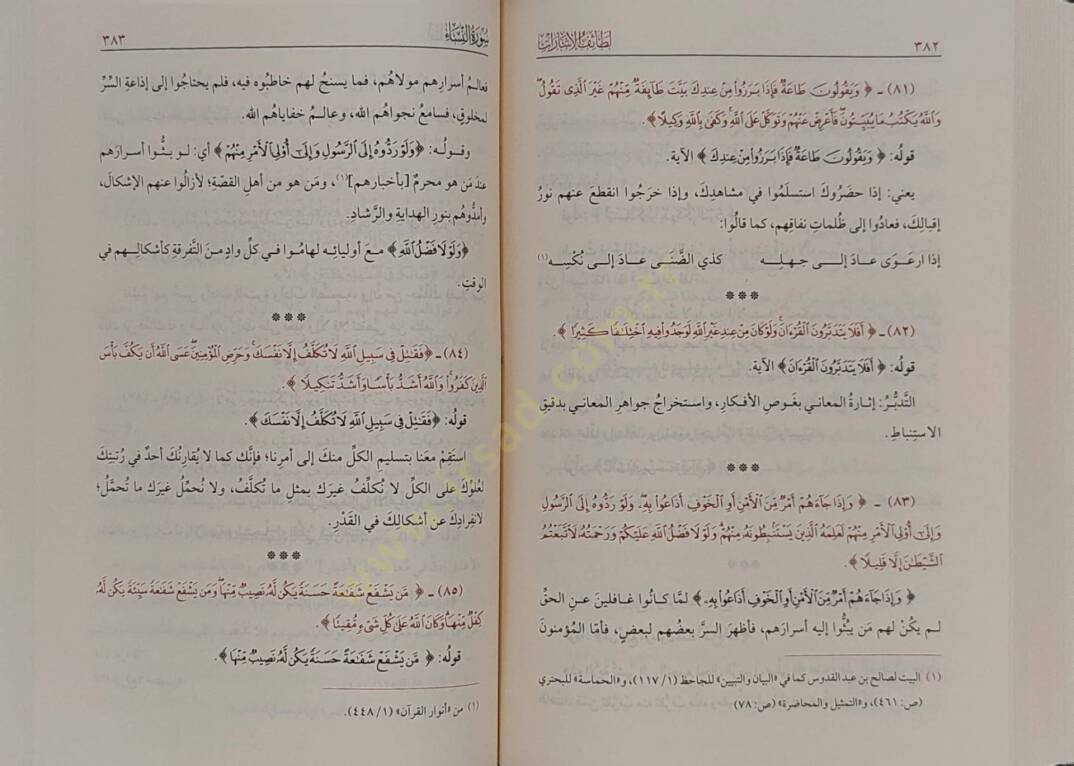 ٣٨٢
لطائف الإشارات
(٨١) ـ ﴿ وَيَقُولُونَ طَاعَةٌ فَإِذَا بَرَزُوا مِنْ عِندِكَ بَيَّتَ طَآئِفَةٌ مِّنْهُمْ غَيْرَ الَّذِى تَقُولُ
وَاللَّهُ يَكْتُبُ مَا يُبَيِّتُونَ فَأَعْرِضْ عَنْهُمْ وَتَوَكَّلْ عَلَى اللَّهِ وَكَفَىٰ بِاللَّهِ وَكِيلًا ﴾.
قولُه: ﴿ وَيَقُولُونَ طَاعَةٌ فَإِذَا بَرَزُوا مِنْ عِندِكَ ﴾ الآية.
يعني: إذا حضَرُوكَ استسلَمُوا في مشاهدِكَ، وإذا خرَجُوا انقطعَ عنهم نورُ
إقبالِكَ، فعادُوا إلى ظُلماتِ نفاقِهم، كما قالُوا:
إذا ارعَوَى عـادَ إلـــى جـهـلِـه كذي الضَّنَـى عـادَ إلى نُكْسِـه (١)
***
(٨٢) ـ ﴿ أَفَلَا يَتَدَبَّرُونَ الْقُرْءَانَ وَلَوْ كَانَ مِنْ عِندِ غَيْرِ اللَّهِ لَوَجَدُوا فِيهِ اخْتِلَٰفًا كَثِيرًا ﴾.
قولُه: ﴿ أَفَلَا يَتَدَبَّرُونَ الْقُرْءَانَ ﴾ الآية.
التَّدبُّرُ: إثارةُ المعاني بغَوصِ الأفكارِ، واستخراجُ جواهرِ المعاني بدقيقِ
الاستِنباطِ.
***
(٨٣) ـ ﴿ وَإِذَا جَاءَهُمْ أَمْرٌ مِّنَ الْأَمْنِ أَوِ الْخَوْفِ أَذَاعُوا بِهِ وَلَوْ رَدُّوهُ إِلَى الرَّسُولِ
وَإِلَىٰ أُوْلِى الْأَمْرِ مِنْهُمْ لَعَلِمَهُ الَّذِينَ يَسْتَنۢبِطُونَهُ مِنْهُمْ وَلَوْلَا فَضْلُ اللَّهِ عَلَيْكُمْ وَرَحْمَتُهُ لَاتَّبَعْتُمُ
الشَّيْطَٰنَ إِلَّا قَلِيلًا ﴾.
﴿ وَإِذَا جَاءَهُمْ أَمْرٌ مِّنَ الْأَمْنِ أَوِ الْخَوْفِ أَذَاعُوا بِهِ ﴾ لمَّا كانُوا غافلينَ عـنِ الحقِّ
لـم يكنْ لهم مَن يبُثُّوا إليه أسرارَهم، فأظهَرَ السرَّ بعضُهم لبعضٍ، فأمَّا المُؤمنونَ
(١) البيت لصالح بن عبد القدوس كما في «البيان والتبيين» للجاحظ (١/ ١١٧)، و«الحماسة» للبحتري
(ص: ٤٦١)، و«التمثيل والمحاضرة» (ص: ٧٨)
سورة النساء
٣٨٣
فعالمُ أسرارِهم مولاهُم، فما يسنحُ لهم خاطبُوه فيه، فلم يحتاجُوا إلى إذاعةِ السِّرِّ
لمخلوقٍ، فسامعُ نجواهُم الله، وعالـمُ خفاياهُم الله.
وقـولُـه: ﴿وَلَوْ رَدُّوهُ إِلَى الرَّسُولِ وَإِلَىٰ أُوْلِى الْأَمْرِ مِنْهُمْ﴾ أي: لـو بثُّـوا أسرارَهم
عندَ مَن هو محرمٌ [بأخبارِهم](١)، ومَن هو من أهلِ القصّةِ؛ لأزالُوا عنهم الإشكالَ،
وأمدُّوهُم بنورِ الهدايةِ والرَّشادِ.
﴿وَلَوْلَا فَضْلُ اللَّهِ﴾ مـع أوليائِـه لهامُـوا في كلِّ وادٍ مـنَ التَّفرقةِ كأشكالِهـم في
الوقتِ.
***
(٨٤) ـ ﴿فَقَٰتِلْ فِى سَبِيلِ اللَّهِ لَا تُكَلَّفُ إِلَّا نَفْسَكَ وَحَرِّضِ الْمُؤْمِنِينَ عَسَى اللَّهُ أَن يَكُفَّ بَأْسَ
الَّذِينَ كَفَرُوا وَاللَّهُ أَشَدُّ بَأْسًا وَأَشَدُّ تَنكِيلًا ﴾.
قولُه: ﴿فَقَٰتِلْ فِى سَبِيلِ اللَّهِ لَا تُكَلَّفُ إِلَّا نَفْسَكَ﴾.
استَقِمْ معَنا بتسليمِ الكلِّ منكَ إلى أمرِنا؛ فإنَّكَ كما لا يُقارِنُكَ أحدٌ في رُتبتِكَ
لعُلوِّكَ على الكلِّ لا نُكلِّفُ غيرَك بمثلِ ما تُكلَّفُ، ولا نُحمِّلُ غيرَك ما تُحمَّلُ؛
لانفِرادِكَ عن أشكالِكَ في القَدْرِ.
***
(٨٥) ـ ﴿ مَّن يَشْفَعْ شَفَٰعَةً حَسَنَةً يَكُن لَّهُ نَصِيبٌ مِّنْهَا وَمَن يَشْفَعْ شَفَٰعَةً سَيِّئَةً يَكُن لَّهُ
كِفْلٌ مِّنْهَا وَكَانَ اللَّهُ عَلَىٰ كُلِّ شَىْءٍ مُّقِيتًا ﴾.
قولُه: ﴿ مَّن يَشْفَعْ شَفَٰعَةً حَسَنَةً يَكُن لَّهُ نَصِيبٌ مِّنْهَا ﴾.
(١) من «أنوار القرآن» (١/ ٤٤٨).